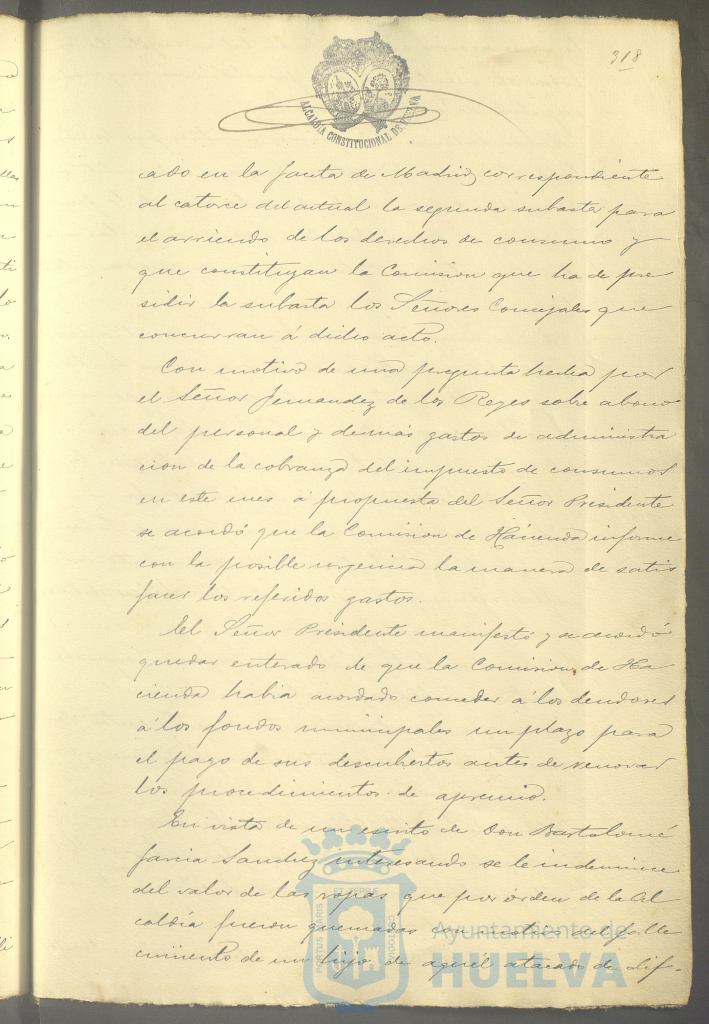 318
ALCALDIA CONSTITUCIONAL DE HUELVA
cado en la Gaceta de Madrid, correspondiente
al catorce del actual la segunda subasta para
el arriendo de los derechos de consumo y
que constituyan la Comision que ha de pre
sidir la subasta los Señores Concejales que
concurran á dicho acto.
Con motivo de una pregunta hecha por
el Señor Fernandez de los Reyes sobre abono
del personal y demás gastos de administra
cion de la cobranza del impuesto de consumos
en este mes á propuesta del Señor Presidente
se acordó que la Comision de Hacienda informe
con la posible urgencia la manera de satis
facer los referidos gastos.
El Señor Presidente manifestó y se acordó
quedar enterado de que la Comision de Ha
cienda habia acordado conceder á los deudores
á los fondos municipales un plazo para
el pago de sus descubiertos antes de renovar
los procedimientos de apremio.
En vista de un escrito de Don Bartolomé
Garcia Sanchez interesando se le indemnice
del valor de las ropas que por órden de la Al
caldía fueron quemadas con motivo del falle
cimiento de un hijo de aquel atacado de dif-
PORTUS MARIS ET TERRE CUSTODIA
Ayuntamiento de
HUELVA